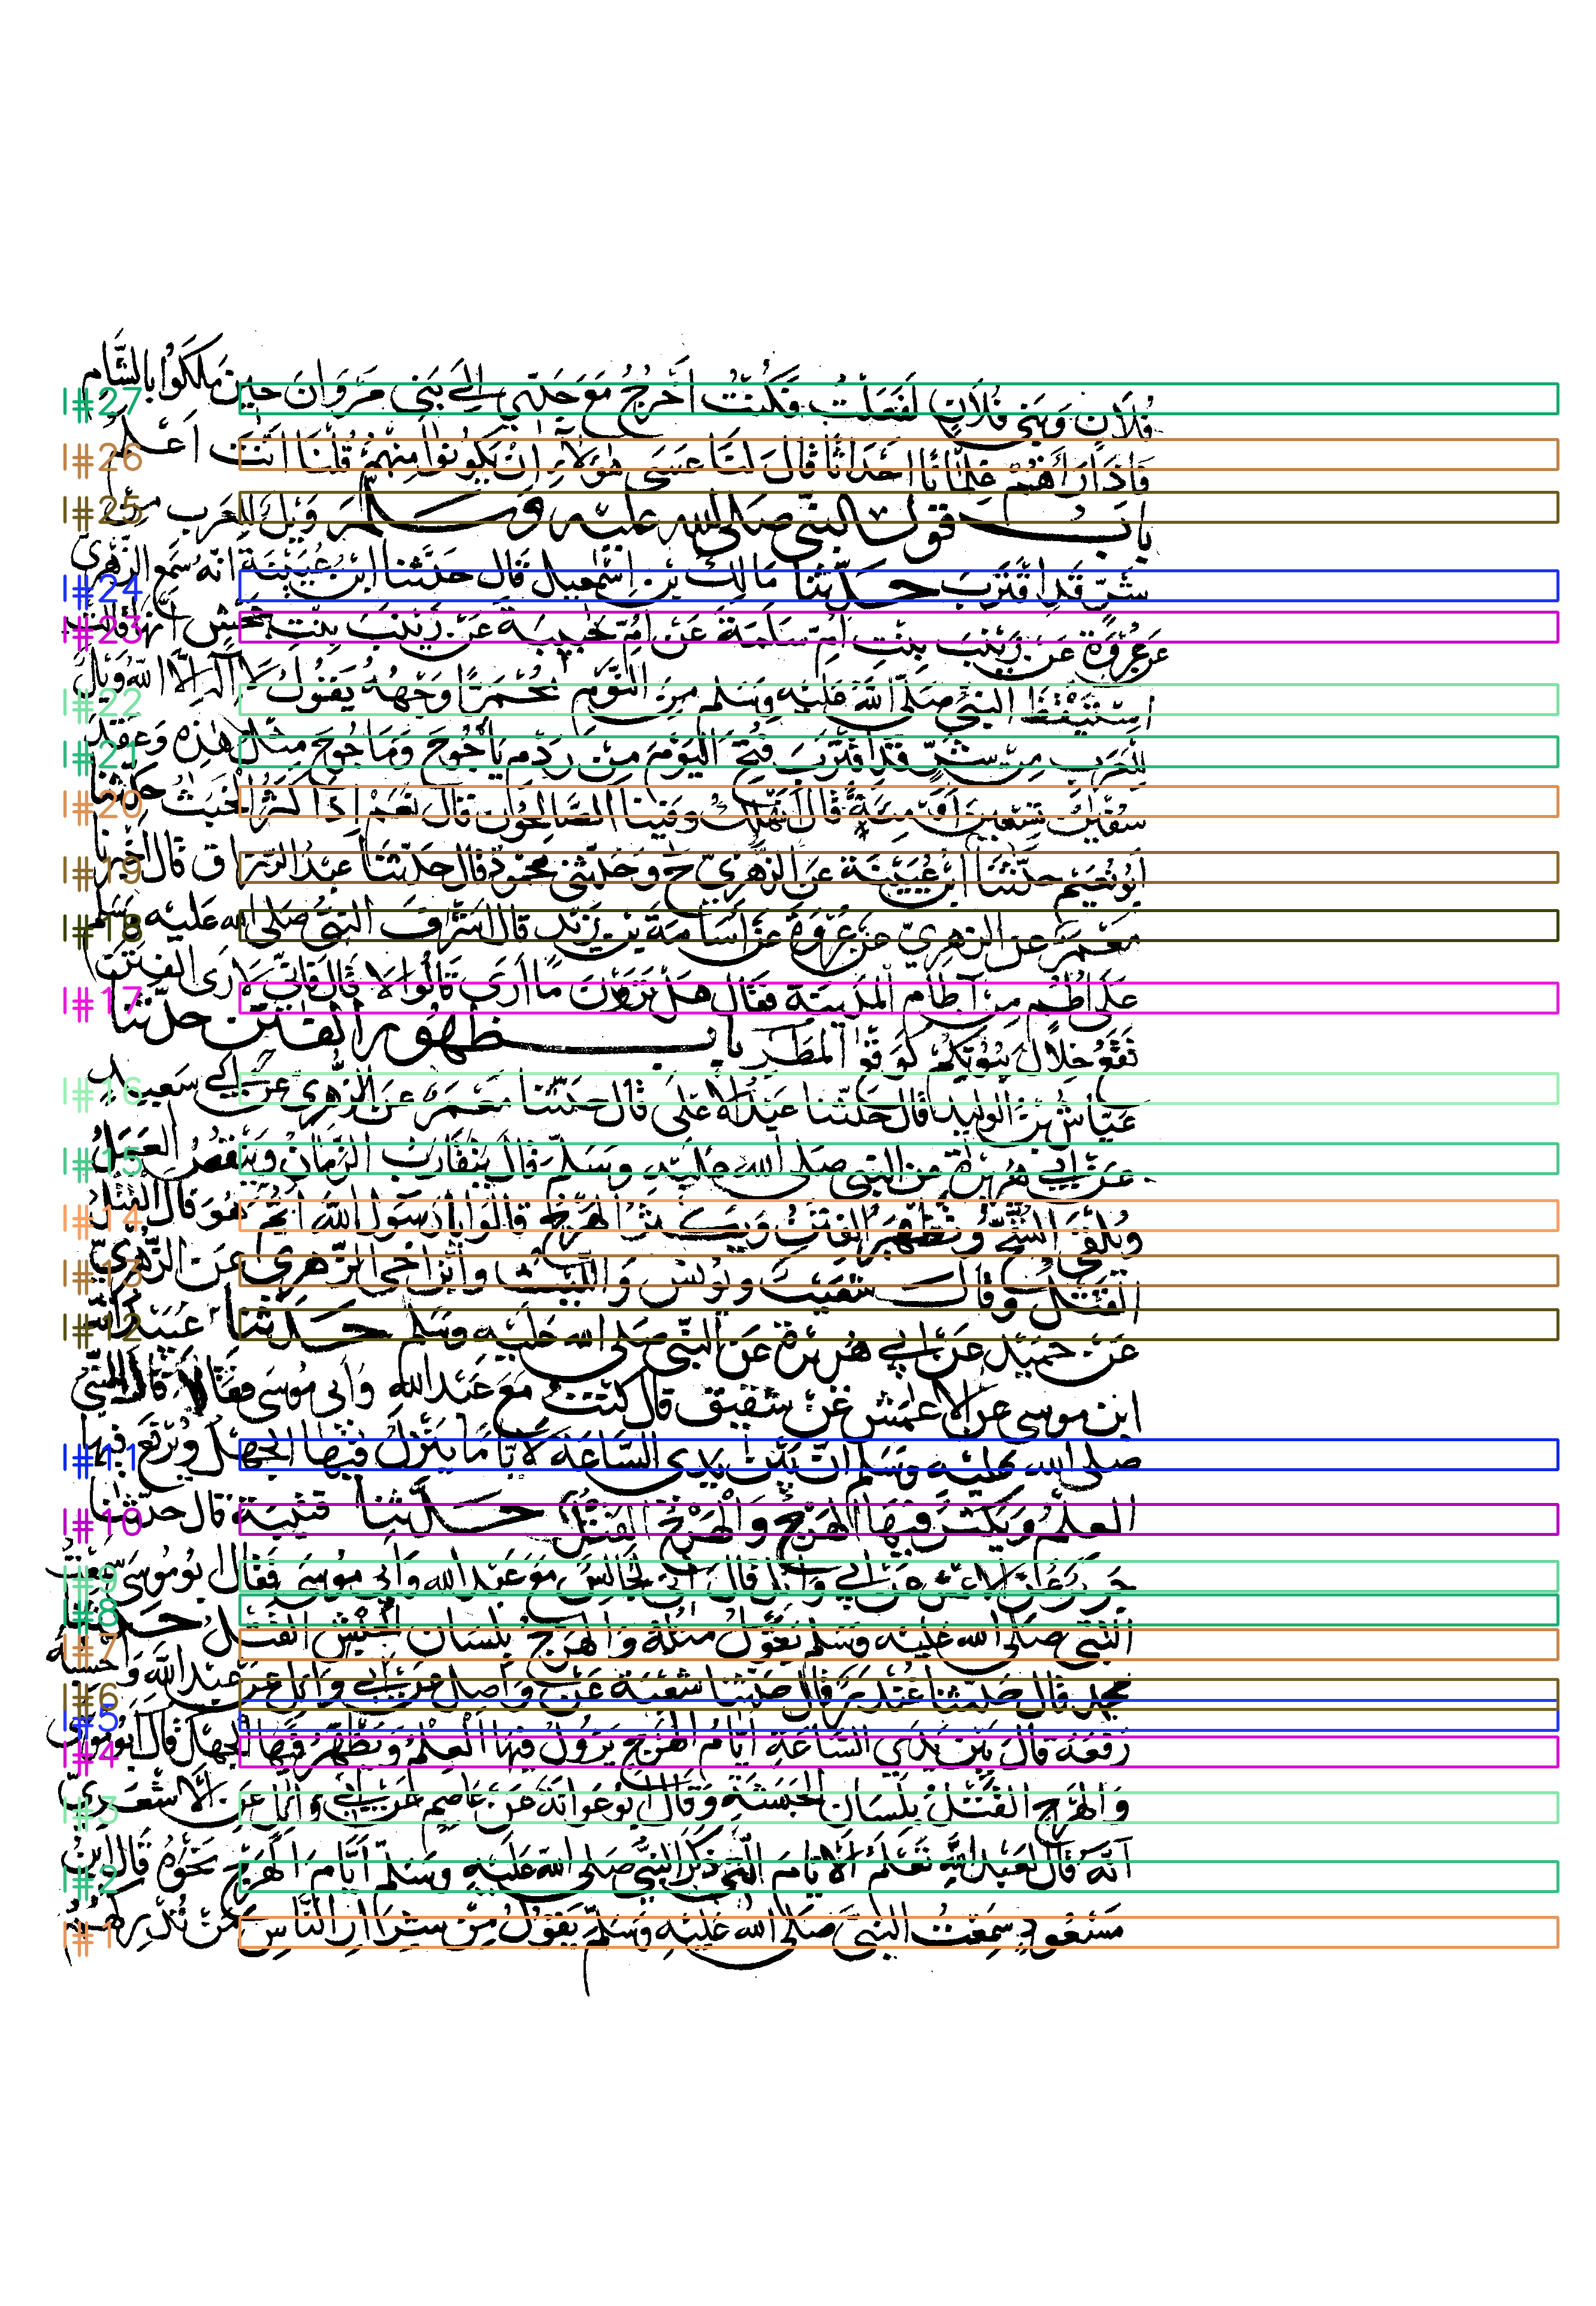 فُلَانٍ وَبَنِي فُلَانٍ لَفَعَلْتُ فَكُنْتُ أَخْرُجُ مَعَ جَدِّي إِلَى بَنِي مَرْوَانَ حِينَ مَلَكُوا بِالشَّام
فَإِذَا رَاهُمْ غِلْمَانًا أَحْدَاثًا قَالَ لَنَا عَسَى هَؤُلَاءِ أَنْ يَكُونُوا مِنْهُمْ قُلْنَا أَنْتَ أَعْلَمُ
باب قول النبي صلى الله عليه وسلم ويل للعرب من
شر قد اقترب حدثنا مالك بن إسمعيل قال حدثنا ابن عيينة أنه سمع الزهري
عن عروة عن زينب بنت أم سلمة عن أم حبيبة عن زينب بنت جحش أنها قالت
استيقظ النبي صلى الله عليه وسلم من النوم محمرا وجهه يقول لا إله إلا الله ويل
للعرب من شر قد اقترب فتح اليوم من ردم ياجوج وماجوج مثل هذه وعقد
سفين تسعين أو مئة قال أنهلك وفينا الصالحون قال نعم إذا كثر الخبث حدثنا
أبو نعيم حدثنا ابن عيينة عن الزهري ح وحدثني محمود قال حدثنا عبد الرزاق قال أخبرنا
معمر عن الزهري عن عروة عن أسامة بن زيد قال أشرف النبي صلى الله عليه وسلم
على أطم من آطام المدينة فقال هل ترون ما أرى قالوا لا قال فاني لأرى الفتن
تقع خلال بيوتكم كوقع المطر باب ظهور الفتن حدثنا
عياش بن الوليد قال حدثنا عبد الاعلى قال حدثنا معمر عن الزهري عن سعيد
عن أبي هريرة عن النبي صلى الله عليه وسلم قال يتقارب الزمان وينقص العمل
ويلقى الشح وتظهر الفتن ويكثر الهرج قالوا يا رسول الله أيم هو قال القتل
القتل وقال شعيب ويونس والليث وابن اخي الزهري عن الزهري
عن حميد عن ابي هريرة عن النبي صلى الله عليه وسلم حدثنا عبيد الله
ابن موسى عن الاعمش عن شقيق قال كنت مع عبد الله وابي موسى فقالا قال النبي
صلى الله عليه وسلم ان بين يدي الساعة لأياما ينزل فيها الجهل ويرفع فيها
العلم ويكثر فيها الهرج والهرج القتل حدثنا قتيبة قال حدثنا
جرير عن الاعمش عن ابي وائل قال اني لجالس مع عبد الله وابي موسى فقال ابو موسى سمعت
النبي صلى الله عليه وسلم يقول مثله والهرج بلسان الحبش القتل حدثنا
محمد قال حدثنا غندر قال حدثنا شعبة عن واصل عن ابي وائل عن عبد الله واحسبه
رفعه قال بين يدي الساعة ايام الهرج يزول فيها العلم ويظهر فيها الجهل قال ابو موسى
والهرج القتل بلسان الحبشة وقال ابو عوانة عن عاصم عن ابي وائل عن الاشعري
انه قال لعبد الله تعلم الايام التي ذكر النبي صلى الله عليه وسلم ايام الهرج نحوه قال ابن
مسعود سمعت النبي صلى الله عليه وسلم يقول من شرار الناس من تدركهم
l#27
l#26
l#25
l#24
l#23
l#22
l#21
l#20
l#19
l#18
l#17
l#16
l#15
l#14
l#13
l#12
l#11
l#10
l#9
l#8
l#7
l#6
l#5
l#4
l#3
l#2
l#1